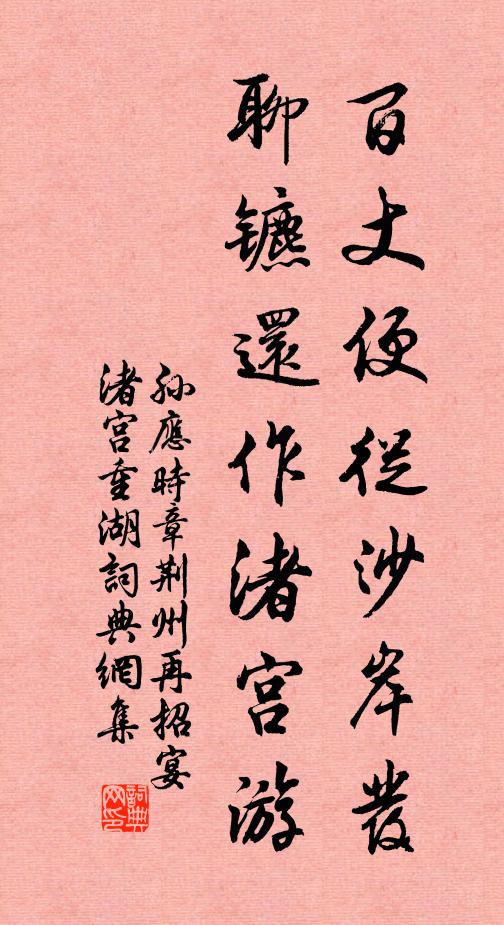 百丈便從沙岸發
聊鑣還作渚宮游
孫應時章荊州再招宴
渚宮重湖詞典網集
詞典網印